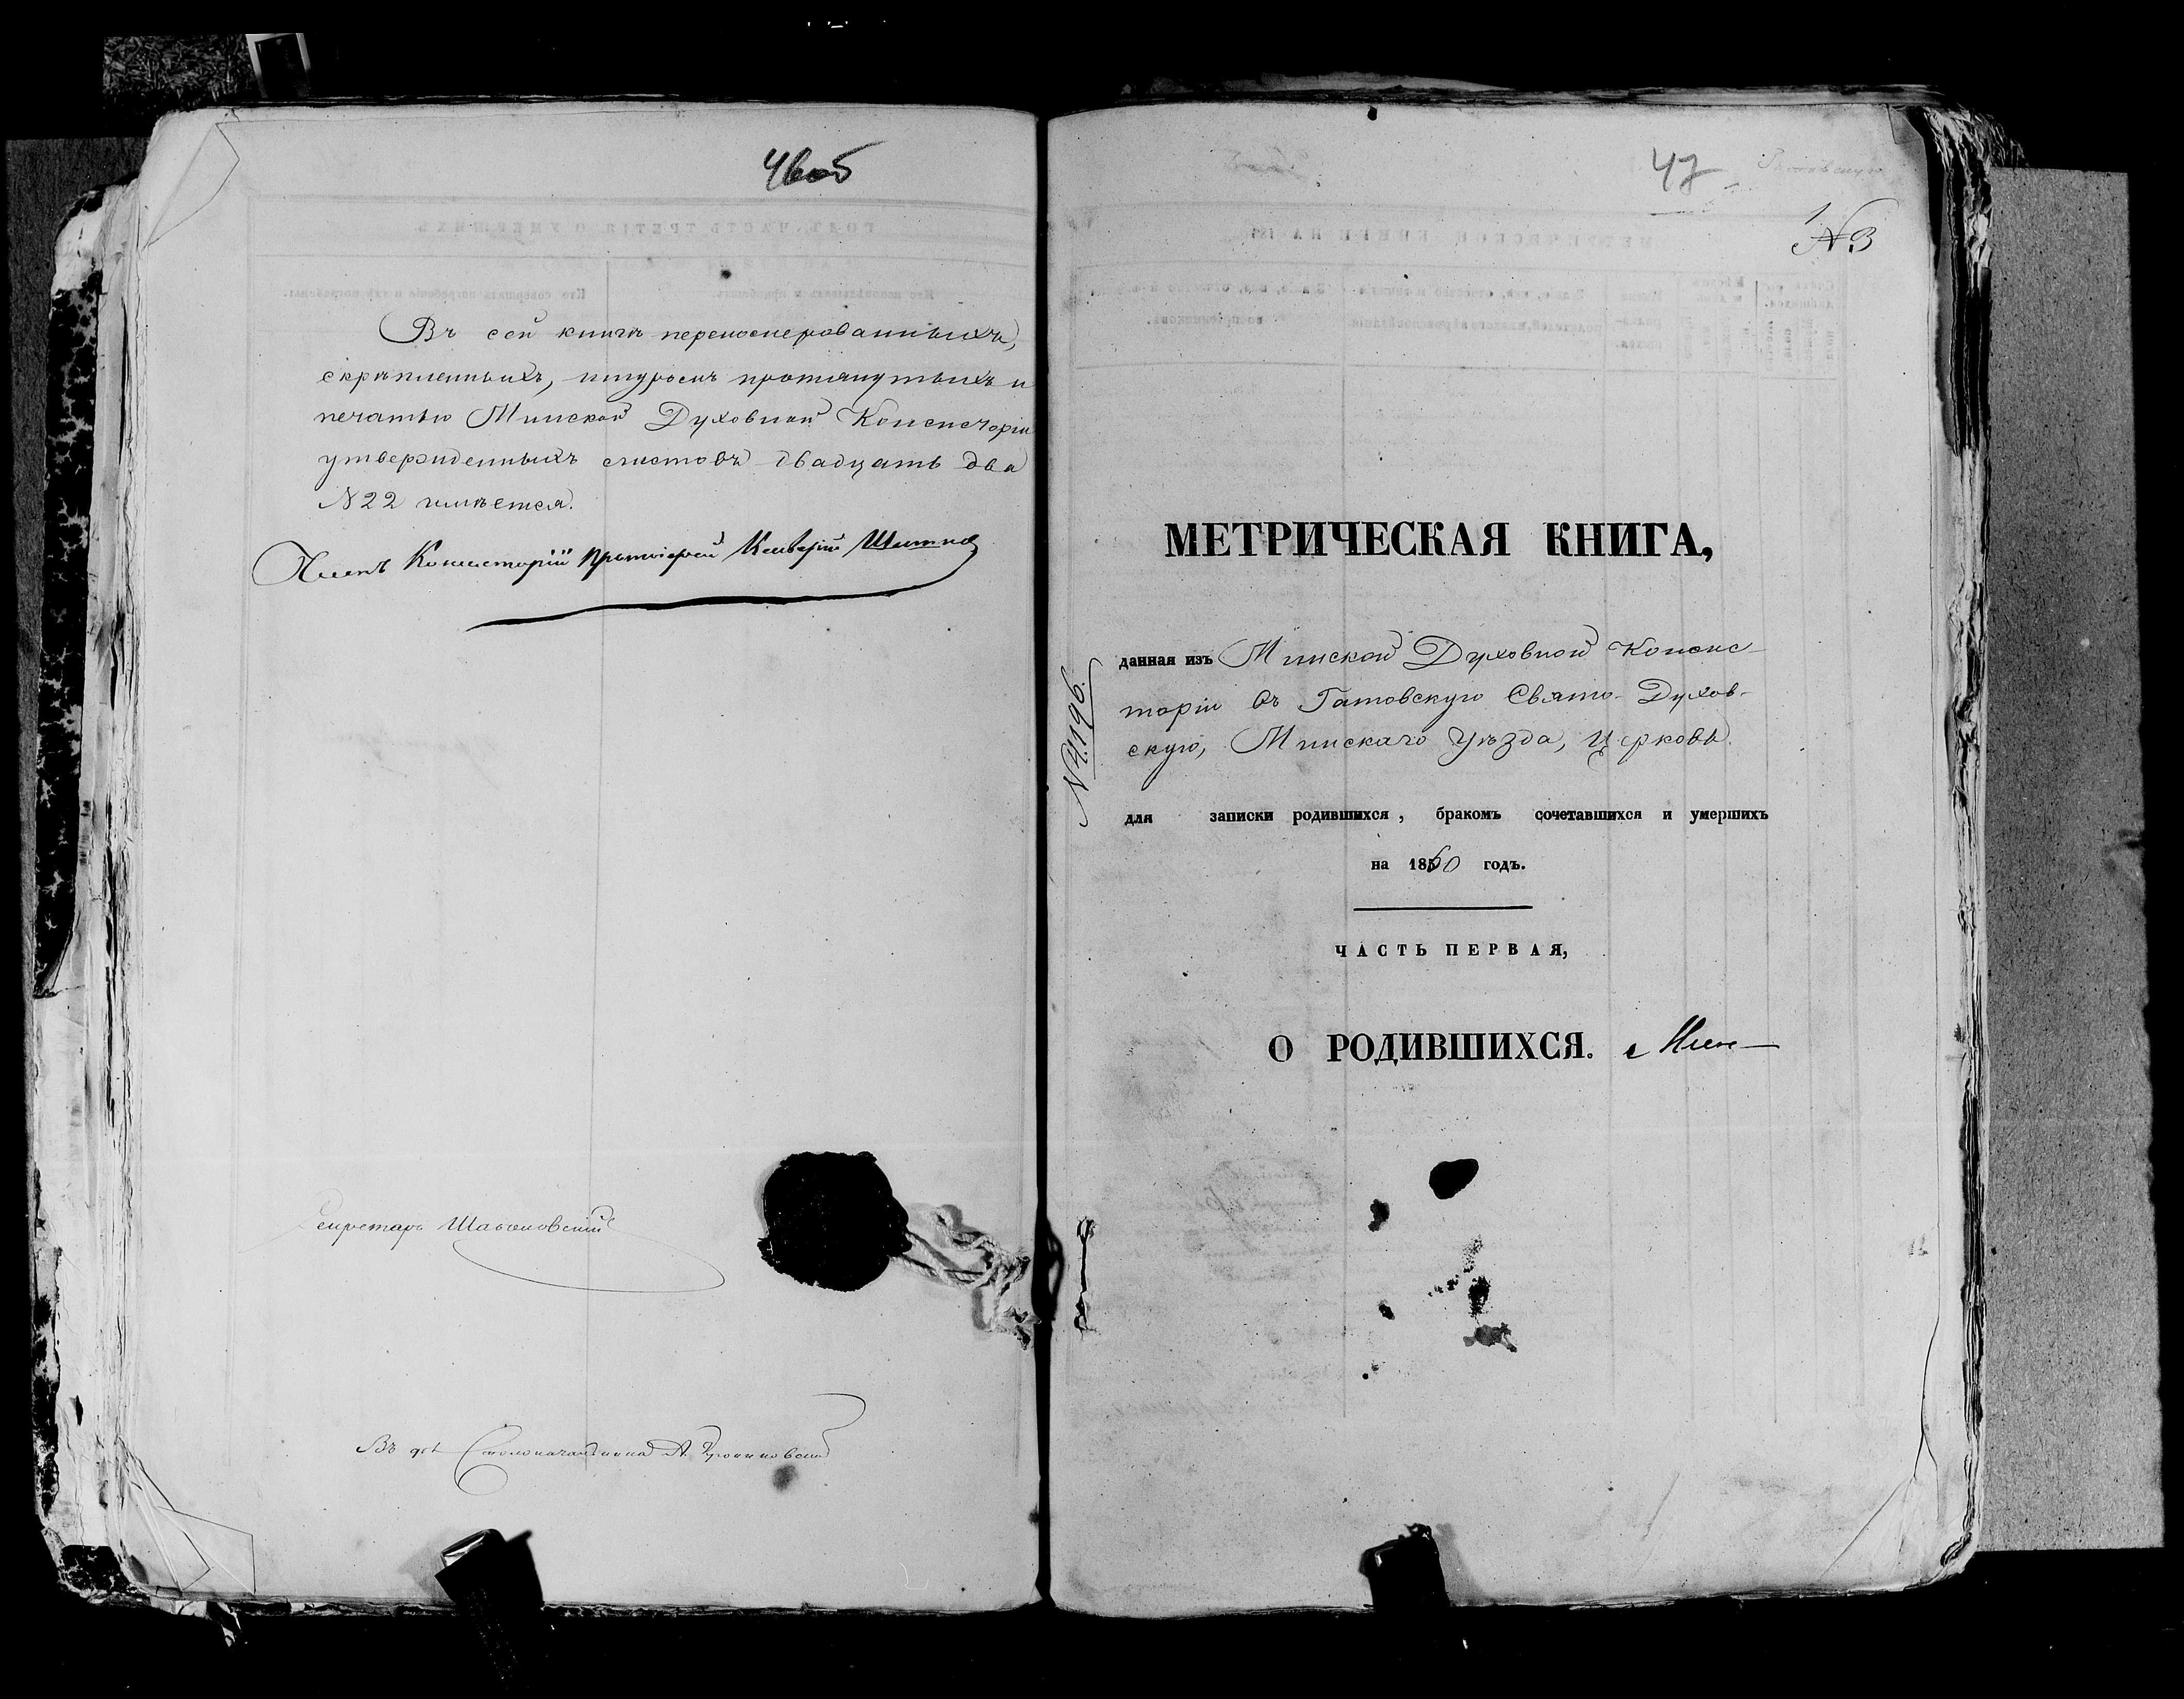 46об
Въ сей книгѣ переномерованныхъ,
скрѣпленныхъ, шнуромъ протянутыхъ и
печатью Минской Духовной Консисторіи
утвержденныхъ листовъ двадцать два
№ 22 имѣется.
Членъ Консисторіи Протоіерей
Секретарь
Въ Столоначальника А.
47
Гатовскую
1
№ 3
МЕТРИЧЕСКАЯ КНИГА,
данная изъ Минской Духовной Консис-
торіи въ Гатовскую Свято-Духов-
скую, Минскаго Уѣзда, Церковь.
№ 4196.
для записки родившихся, бракомъ сочетавшихся и умершихъ
на 1860 годъ.
ЧАСТЬ ПЕРВАЯ,
О РОДИВШИХСЯ.